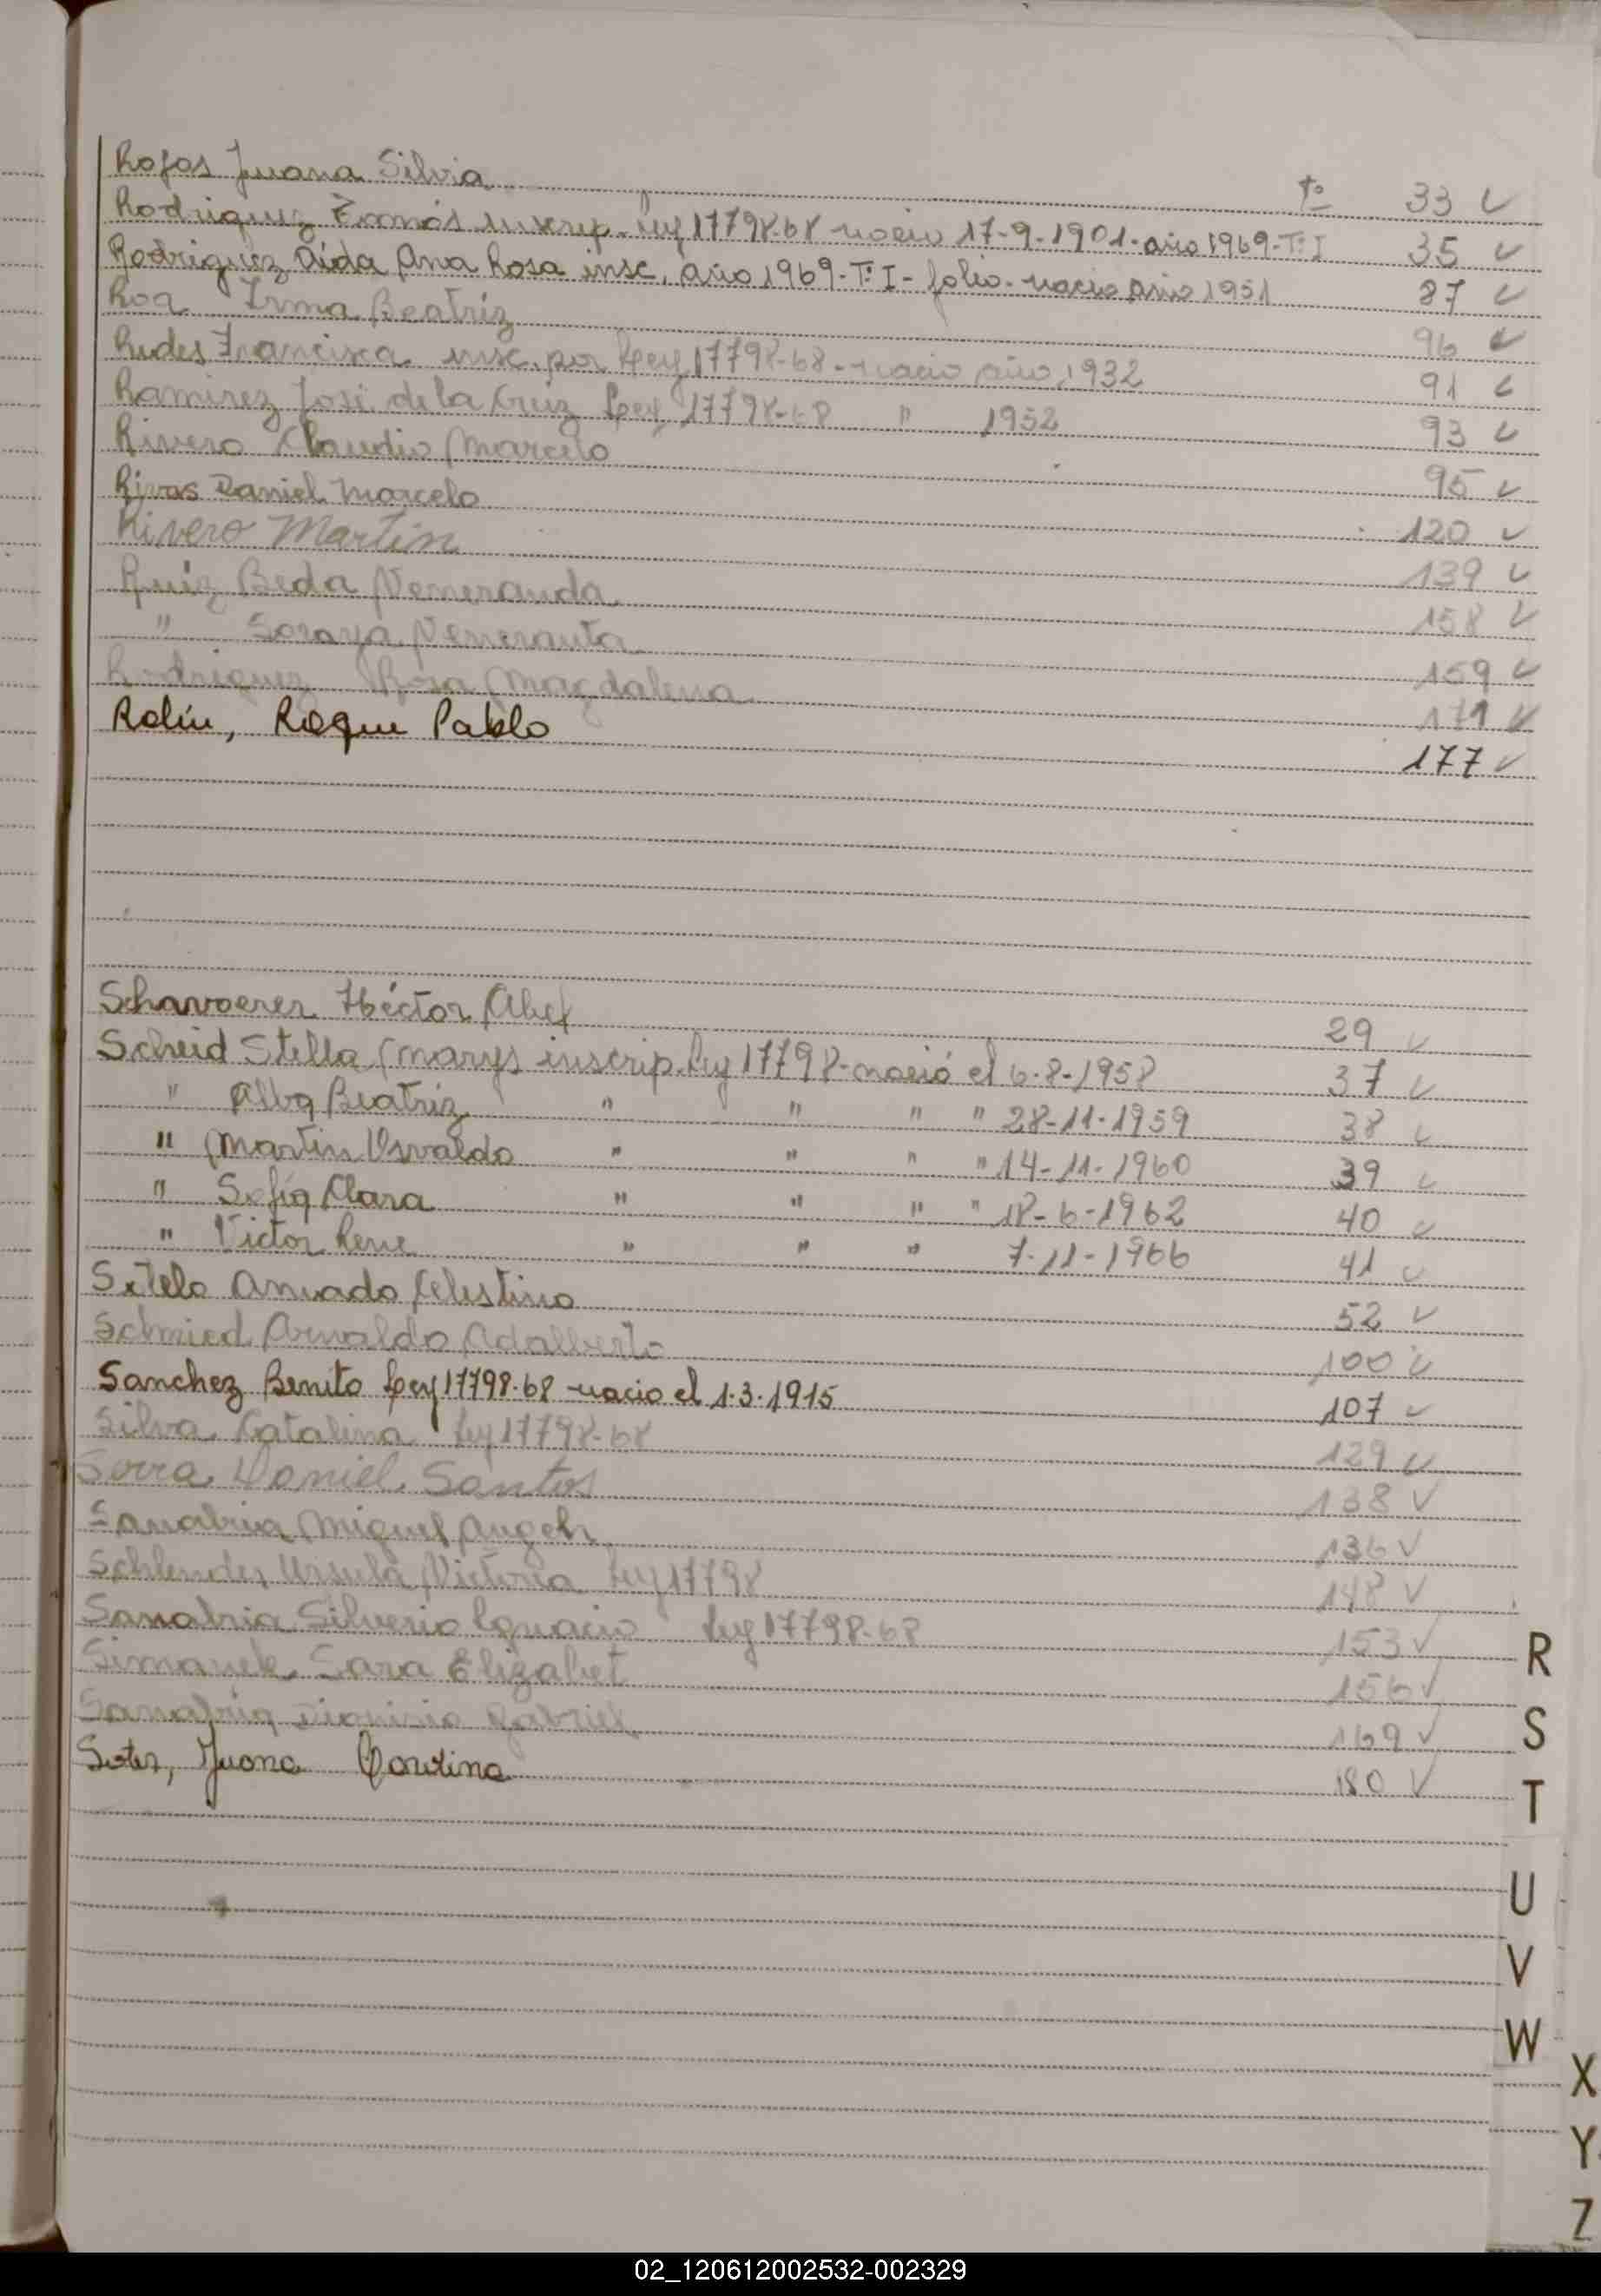 Rojas Juana Silvia Fº 33
Rodriguez Tomás inscrip. Ley 17798-68 nació 17-9-1901-año 1969-Tº I 35
Rodriguez Aida Ana Rosa insc. año 1969-Tº I - folio - nació año 1951 87
Roa Irma Beatriz 96
Francisca insc. por Ley 17798-68 - nació año 1932 91
Ramirez José de la Cruz Ley 17798-68 " 1952 93
Rivero Claudio Marcelo 95
Rivas Daniel Marcelo 120
Rivero Martin 139
Ruiz Beda Veneranda 158
" Soraya Veneranta 159
Rodriguez Rosa Magdalena 171
Rolin, Roque Pablo 177
Héctor Abel 29
Scheid Stella Marys inscrip. Ley 17798-nació el 6-8-1958 37
" Alba Beatriz " " " " 28-11-1959 38
" Martin Osvaldo " " " " 14-11-1960 39
" Sofia Clara " " " " 18-6-1962 40
" Victor Rene " " " 7-11-1966 41
Sotelo Amado Celestino 52
Schmied Arnoldo Adalberto 100
Sanchez Benito Ley 17798-68 nacio el 1-3-1915 107
Silva Catalina Ley 17798-68 129
Daniel Santos 138
Sanabria Miguel Angel 136
Ursula Victoria Ley 17798 148
Sanabria Silverio Ignacio Ley 17798-68 153
Simanek Sara Elizabet 156
Sanabria Dionisio Gabriel 169
Juana 180
R
S
T
U
V
W
X
Y
Z
02_120612002532-002329